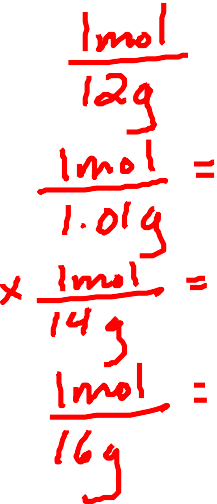 1mol
12g
1mol =
1.01g
× 1mol =
14g
1mol =
16g